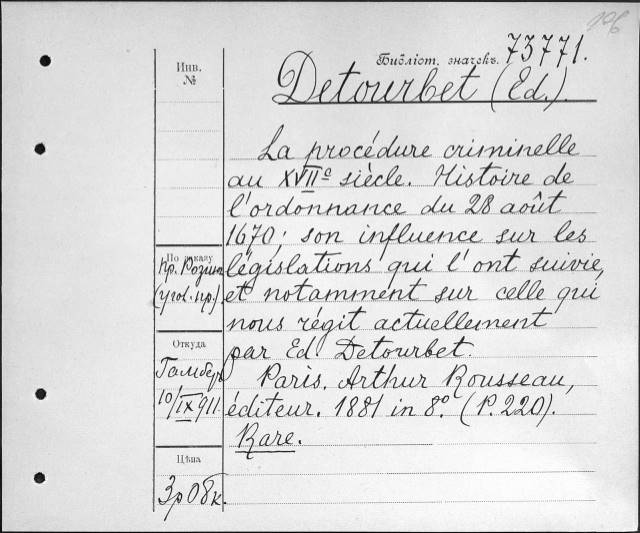 Библіот. значекъ. 73771.
Инв.
№
Detourbet (Ed.).
La procédure criminelle
au XVIIe siècle. Histoire de
l'ordonnance du 28 août
1670; son influence sur les
législations qui l'ont suivie,
et notamment sur celle qui
nous régit actuellement
par Ed Detourbet.
Paris. Arthur Rousseau,
éditeur. 1881 in 8º. (P. 220).
Rare.
По заказу
пр. Розин
(угол. пр.)
Откуда
Гамбер
10/IX 911
Цѣна
3р 08к.